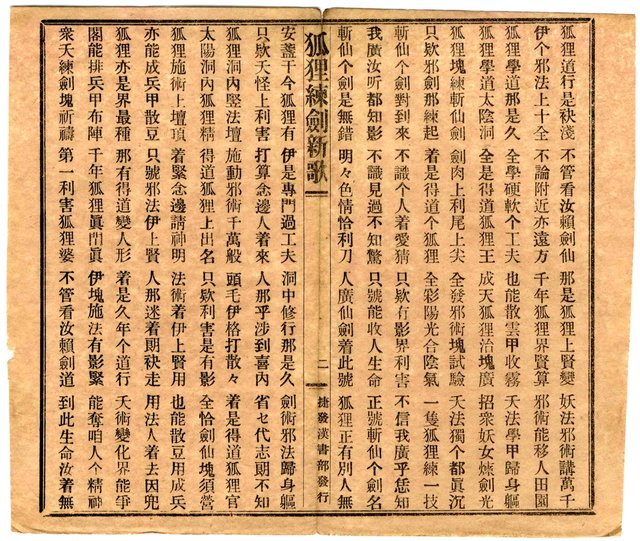 狐狸道行是袂淺 不管看汝賴劍仙 那是狐狸上賢變 妖法邪術講萬千
伊个邪法上十全 不論附近亦遠方 千年狐狸界賢算 邪術能移人田園
狐狸學道那是久 全學硬軟个工夫 也能散雲甲收霧 夭法學甲歸身軀
狐狸學道太陰洞 全是得道狐狸王 成天狐狸治塊廣 招衆妖女煉劍光
狐狸塊練斬仙劍 劍肉上利尾上尖 全發邪術塊試驗 夭法獨个都眞沉
只欵邪劍那練起 着是得道个狐狸 全彩陽光合陰氣 一隻狐狸練一技
斬仙个劍對到來 不識个人着愛猜 只欵有影界利害 不信我廣乎恁知
我廣汝听都知影 不識見過不知驚 只號能收人生命 正號斬仙个劍名
斬仙个劍是無錯 明々色情恰利刀 人廣仙劍着此號 狐狸正有別人無
狐狸練劍新歌 二 捷發漢書部發行
安盞干今狐狸有 伊是專門過工夫 洞中修行那是久 劍術邪法歸身軀
只欵夭怪上利害 打算念邊人着來 人那乎涉到喜內 省七代志朗不知
狐狸洞內堅法壇 施動邪術千萬般 頭毛伊格打散々 着是得道狐狸官
太陽洞內狐狸精 得道狐狸上出名 只欵利害是有影 全恰劍仙塊須營
狐狸施術上壇頂 着緊念邊請神明 法術着伊上賢用 也能散豆用成兵
亦能成兵甲散豆 只號邪法伊上賢 人那迷着朗袂走 用法人着去因兜
狐狸亦是界最種 那有得道變人形 着是久年个道行 夭術變化界能爭
閣能排兵甲布陣 千年狐狸眞門眞 伊塊施法有影緊 能奪咱人个精神
衆夭練劍塊祈禱 第一利害狐狸婆 不管看汝賴劍道 到此生命汝着無